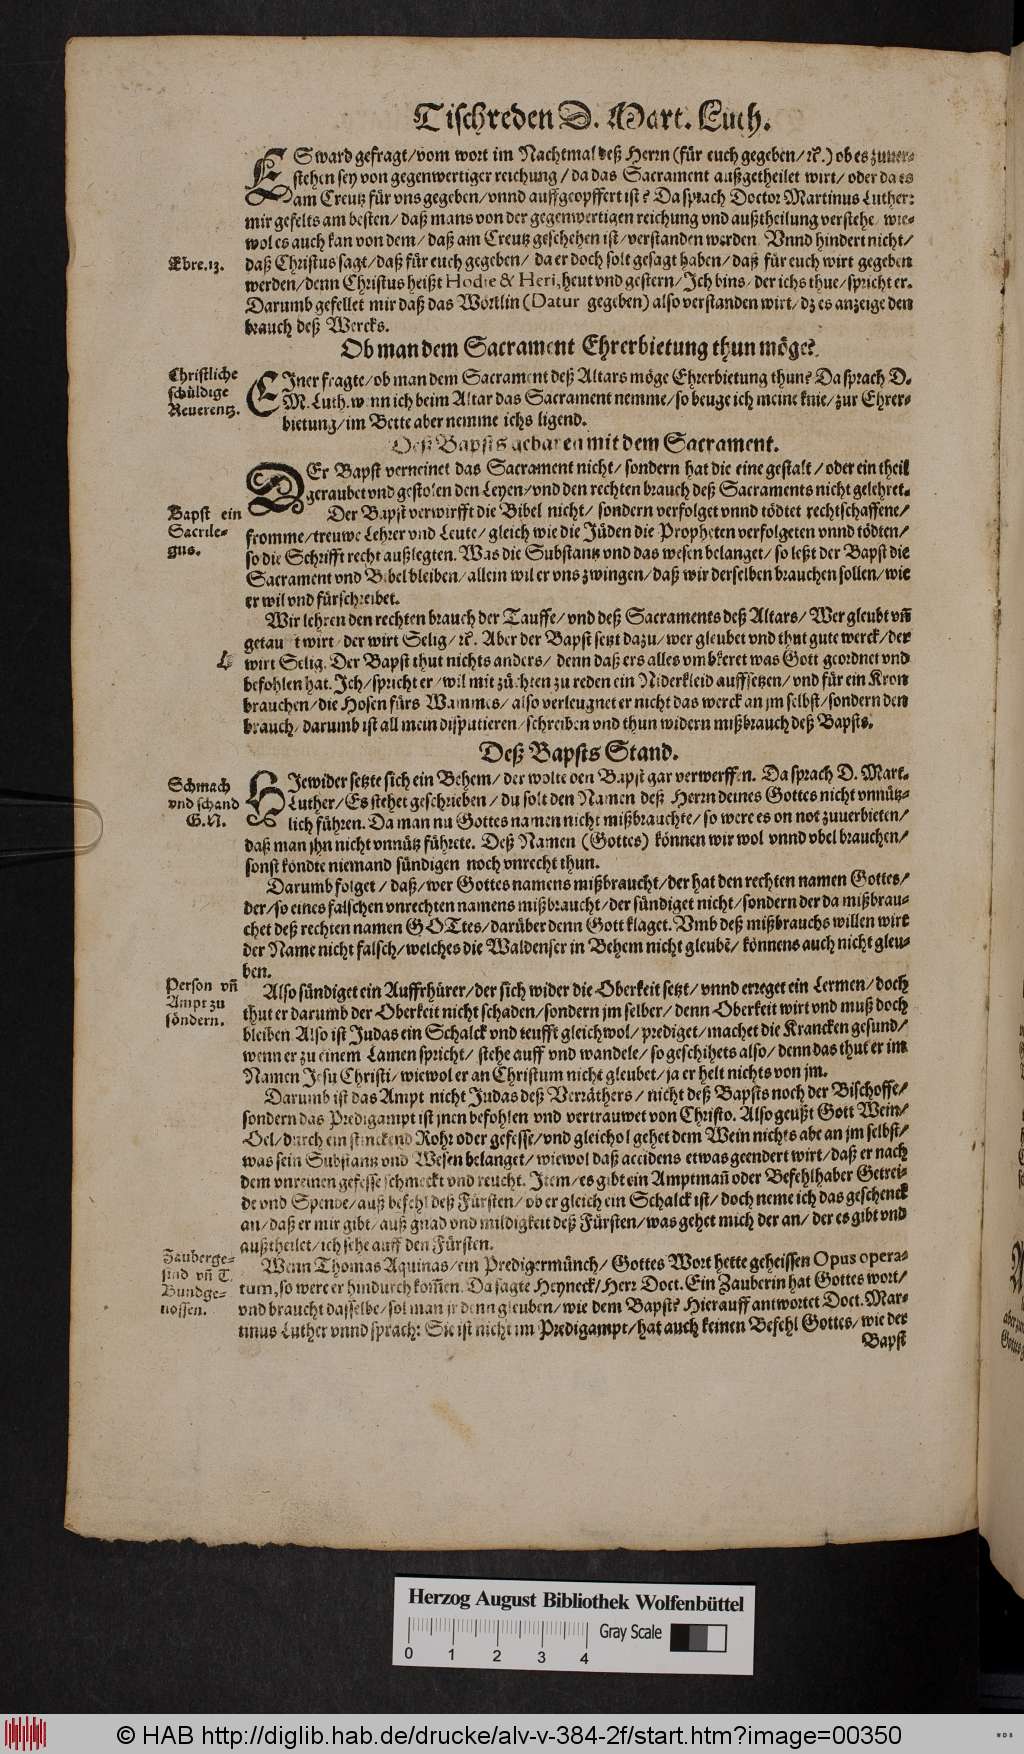 Tischreden D. Mart. Luth.
ES ward gefragt/vom wort im Nachtmal deß Herrn (für euch gegeben/ ꝛc.) ob es zuuer-
stehen sey von gegenwertiger reichung/ da das Sacrament außgetheilet wirt/ oder da es
am Creutz für vns gegeben/vnnd auffgeopffert ist? Da sprach Doctor Martinus Luther:
mir gefelts am besten/ daß mans von der gegenwertigen reichung vnd außtheilung verstehe/ wie-
wol es auch kan von dem/ daß am Creutz geschehen ist/verstanden werden. Vnnd hindert nicht/
Ebre. 13.
daß Christus sagt/daß für euch gegeben/ da er doch solt gesagt haben/ daß für euch wirt gegeben
werden/denn Christus heißt Hodie & Heri, heut vnd gestern/ Ich bins/ der ichs thue/ spricht er.
Darumb gefellet mir daß das Wörtlin (Datur gegeben) also verstanden wirt/ dz es anzeige den
brauch deß Wercks.
Ob man dem Sacrament Ehrerbietung thun möge?
Christliche
schüldige
Reuerentz.
EIner fragte/ob man dem Sacrament deß Altars möge Ehrerbietung thun? Da sprach D.
M. Luth. wenn ich beim Altar das Sacrament nemme/ so beuge ich meine knie/ zur Ehrer-
bietung/im Bette aber nemme ichs ligend.
Deß Bapsts gebaren mit dem Sacrament.
DEr Bapst verneinet das Sacrament nicht/ sondern hat die eine gestalt/ oder ein theil
geraubet vnd gestolen den Leyen/vnd den rechten brauch deß Sacraments nicht gelehret.
Bapst ein
Sacrile-
gus.
Der Bapst verwirfft die Bibel nicht/ sondern verfolget vnnd tödtet rechtschaffene/
fromme/treuwe Lehrer vnd Leute/ gleich wie die Jüden die Propheten verfolgeten vnnd tödten/
so die Schrifft recht außlegten. Was die Substantz vnd das wesen belanget/ so leßt der Bapst die
Sacrament vnd Bibel bleiben/ allein wil er vns zwingen/ daß wir derselben brauchen sollen/ wie
er wil vnd fürschreibet.
Wir lehren den rechten brauch der Tauffe/ vnd deß Sacraments deß Altars/ Wer gleubt vñ
getau t wirt/ der wirt Selig/ ꝛc. Aber der Bapst setzt dazu/ wer gleubet vnd thut gute werck/ der
wirt Selig. Der Bapst thut nichts anders/ denn daß ers alles vmbkeret was Gott geordnet vnd
befohlen hat. Ich/ spricht er/ wil mit züchten zu reden ein Niderkleid auffsetzen/ vnd für ein Kron
brauchen/ die Hosen fürs Wammes/ also verleugnet er nicht das werck an jm selbst/ sondern den
brauch/ darumb ist all mein disputieren/ schreiben vnd thun widern mißbrauch deß Bapsts.
Deß Bapsts Stand.
Schmach
vnd schand
G. N.
HIewider setzte sich ein Behem/ der wolte den Bapst gar verwerffen. Da sprach D. Mart.
Luther/ Es stehet geschrieben/ du solt den Namen deß Herrn deines Gottes nicht vnnütz-
lich führen. Da man nu Gottes namen nicht mißbrauchte/ so were es on not zuuerbieten/
daß man jhn nicht vnnütz führete. Deß Namen (Gottes) können wir wol vnnd vbel brauchen/
sonst köndte niemand sündigen noch vnrecht thun.
Darumb folget/ daß/ wer Gottes namens mißbraucht/ der hat den rechten namen Gottes/
der/ so eines falschen vnrechten namens mißbraucht/ der sündiget nicht/ sondern der da mißbrau-
chet deß rechten namen GOTtes/ darüber denn Gott klaget. Vmb deß mißbrauchs willen wirt
der Name nicht falsch/ welches die Waldenser in Behem nicht gleubē/ könnens auch nicht gleu-
ben.
Person vñ
Ampt zu
söndern.
Also sündiget ein Auffrhürer/ der sich wider die Oberkeit setzt/ vnnd erreget ein Lermen/ doch
thut er darumb der Oberkeit nicht schaden/ sondern jm selber/ denn Oberkeit wirt vnd muß doch
bleiben. Also ist Judas ein Schalck vnd teufft gleichwol/ prediget/ machet die Krancken gesund/
wenn er zu einem Lamen spricht/ stehe auff vnd wandele/ so geschihets also/ denn das thut er im
Namen Jesu Christi/ wiewol er an Christum nicht gleubet/ ja er helt nichts von jm.
Darumb ist das Ampt nicht Judas deß Verräthers/ nicht deß Bapsts noch der Bischoffe/
sondern das Predigampt ist jnen befohlen vnd vertrauwet von Christo. Also geußt Gott Wein/
Oel/ durch ein stinckend Rohr oder gefesse/ vnd gleichol gehet dem Wein nichts abe an jm selbst/
was sein Substantz vnd Wesen belanget/ wiewol daß accidens etwas geendert wirt/ daß er nach
dem vnreinen gefesse schmeckt vnd reucht. Item/ es gibt ein Amptmañ oder Befehlhaber Getrei-
de vnd Spende/ auß befehl deß Fürsten/ ob er gleich ein Schalck ist/ doch neme ich das geschenck
an/ daß er mir gibt/ auß gnad vnd mildigkeit deß Fürsten/ was gehet mich der an/ der es gibt vnd
außtheilet/ ich sehe auff den Fürsten.
Zauberge-
sind vñ T.
Bundge-
nossen.
Wenn Thomas Aquinas/ ein Predigermünch/ Gottes Wort hette geheissen Opus opera-
tum, so were er hindurch kom̃en. Da sagte Heyneck/ Herr Doct. Ein Zauberin hat Gottes wort/
vnd braucht dasselbe/ sol man jr denn gleuben/ wie dem Bapst? Hierauff antwortet Doct. Mar-
tinus Luther vnnd sprach: Sie ist nicht im Predigampt/ hat auch keinen Befehl Gottes/ wie der
Bapst
Herzog August Bibliothek Wolfenbüttel
Gray Scale
0 1 2 3 4
© HAB http://diglib.hab.de/drucke/alv-v-384-2f/start.htm?image=00350